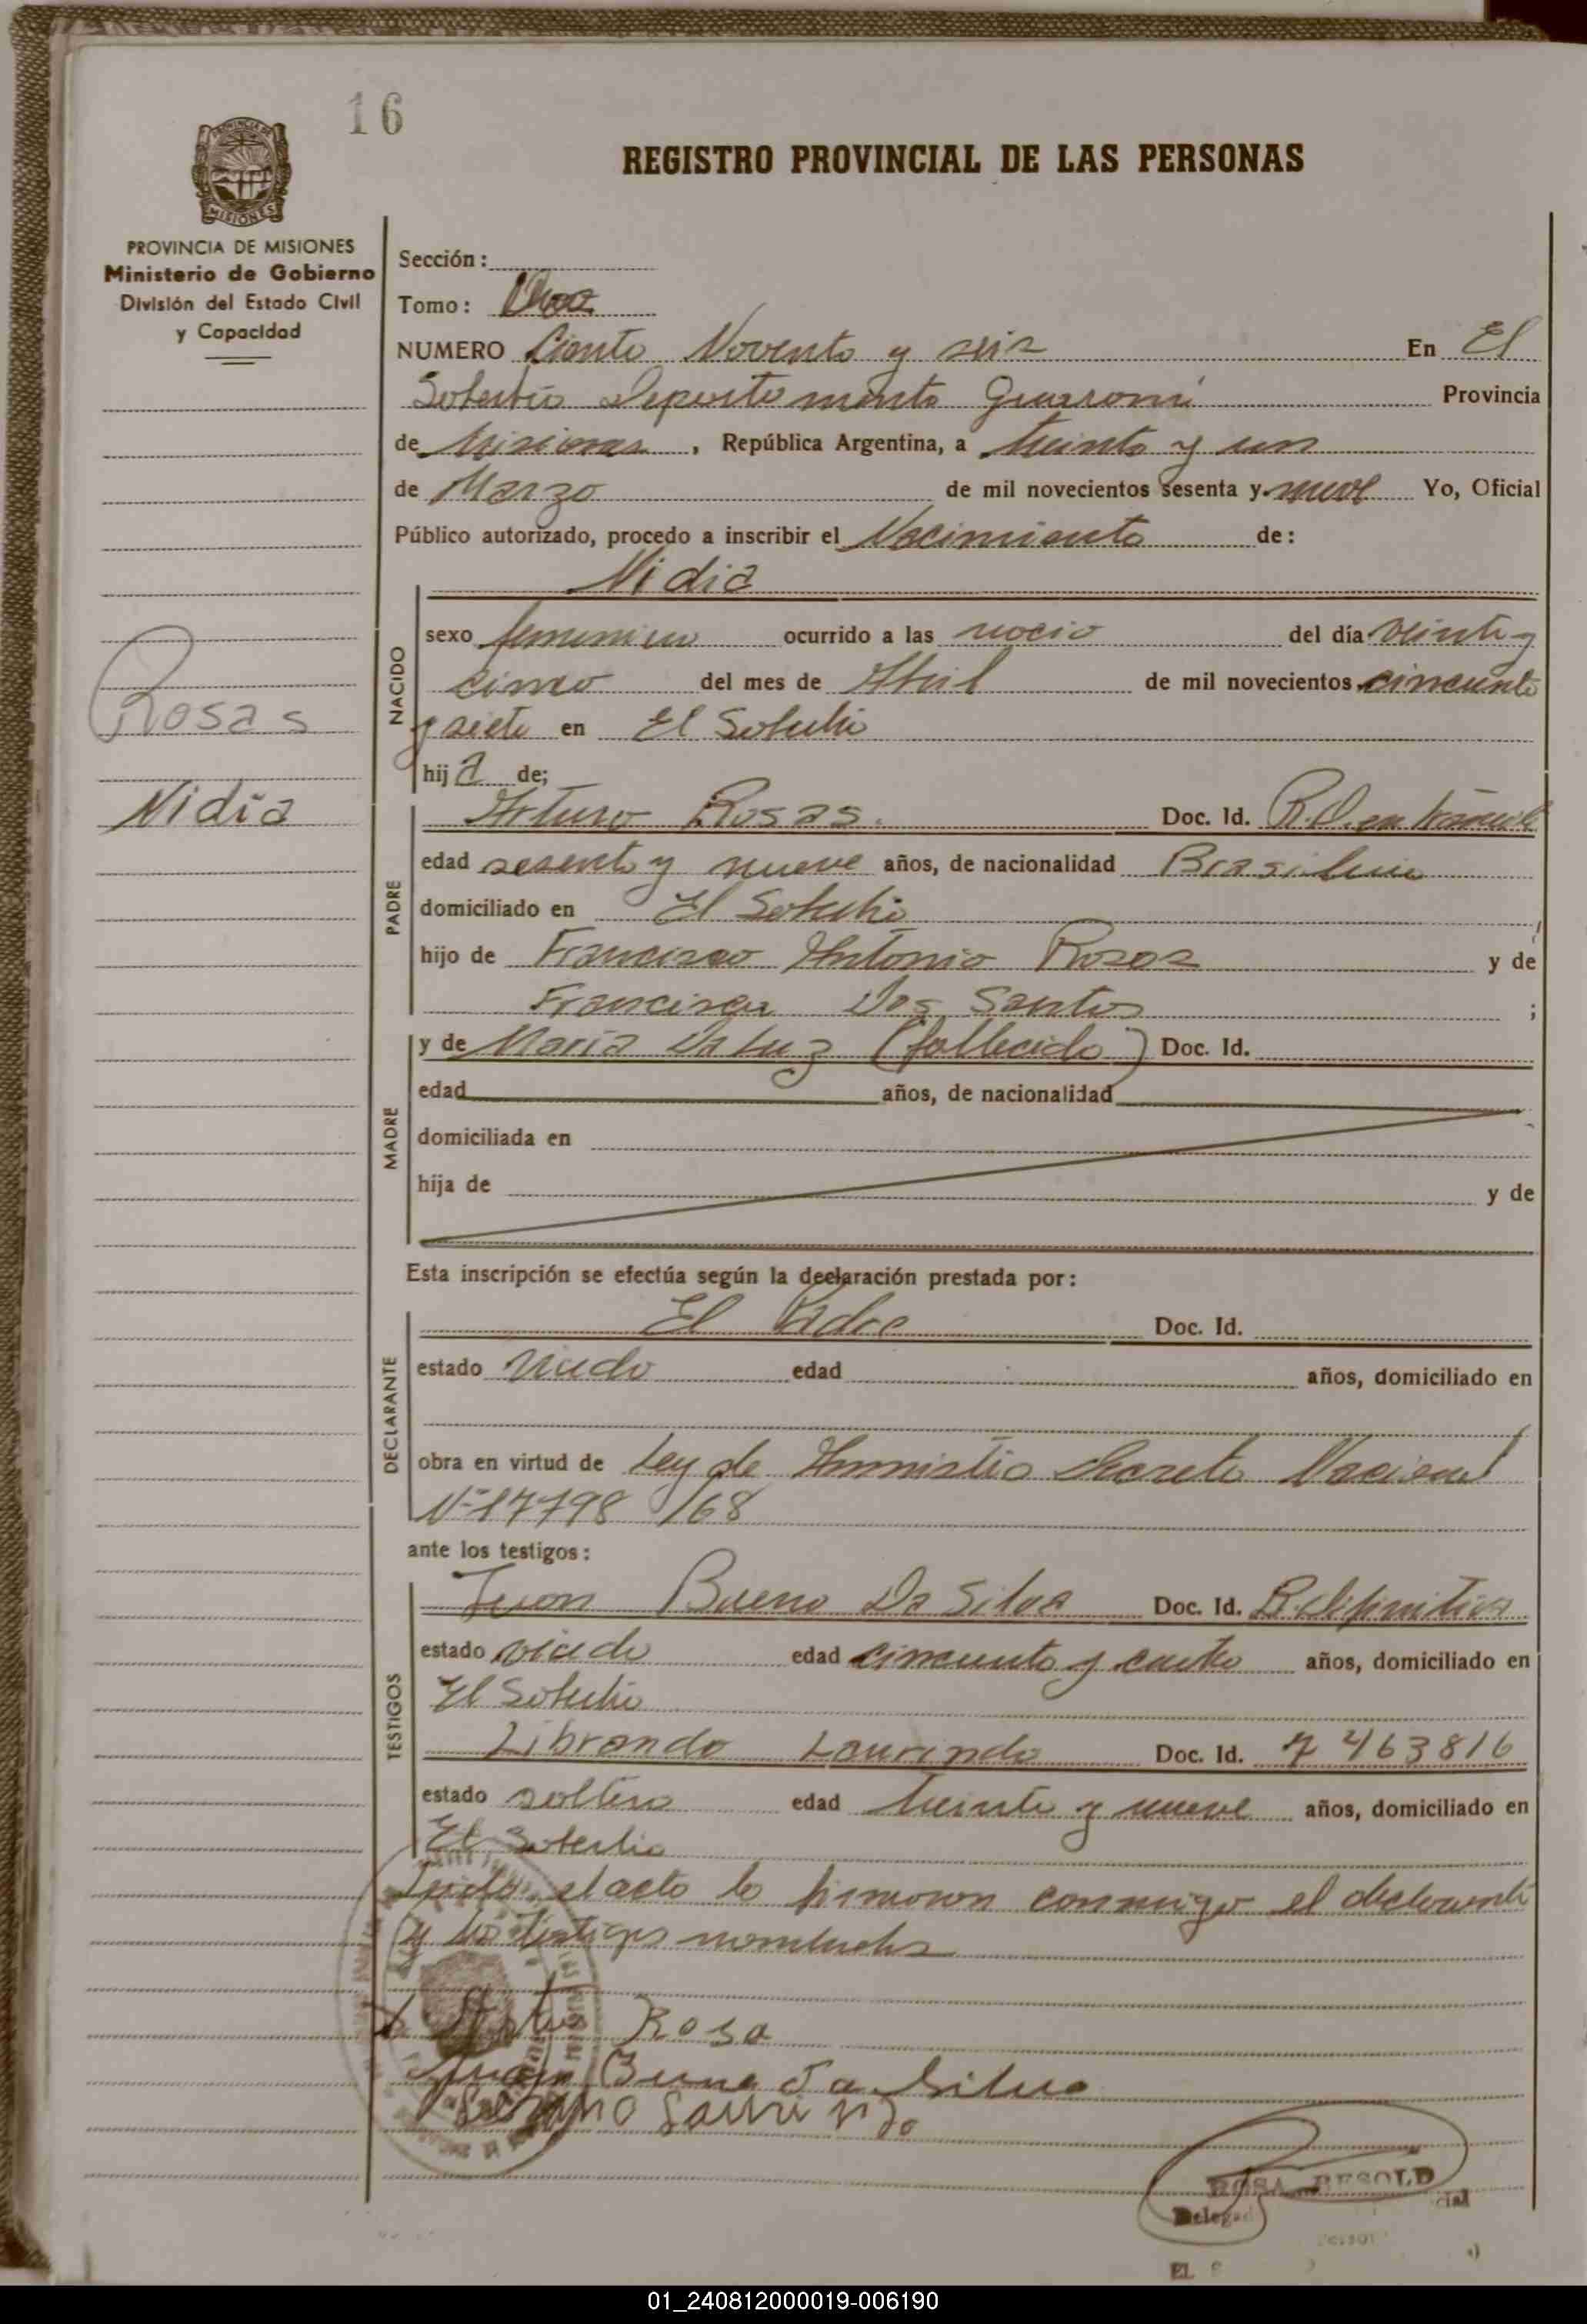 16
REGISTRO PROVINCIAL DE LAS PERSONAS
PROVINCIA DE MISIONES
PROVINCIA DE MISIONES
Ministerio de Gobierno
División del Estado Civil
y Capacidad
Sección:
Tomo: Dos
NUMERO Ciento Noventa y seis En El
Soberbio Departamento Guaraní Provincia
de Misiones, República Argentina, a treinta y un
de Marzo de mil novecientos sesenta y nueve Yo, Oficial
Público autorizado, procedo a inscribir el Nacimiento de:
Nidia
Rosas
Nidia
NACIDO
sexo femenino ocurrido a las nacio del día veinte y
cinco del mes de Abril de mil novecientos cincuenta
y siete en El Soberbio
hija de;
PADRE
Arturo Rosas. Doc. Id. R.D. en trámite
edad sesenta y nueve años, de nacionalidad Brasilera
domiciliado en El Soberbio
hijo de Francisco Antonio Rosas y de
Francisca Dos Santos ;
MADRE
y de Maria Da Luz (fallecida) Doc. Id.
edad años, de nacionalidad
domiciliada en
hija de y de
Esta inscripción se efectúa según la declaración prestada por:
DECLARANTE
El Padre Doc. Id.
estado viudo edad años, domiciliado en
obra en virtud de Ley de Amnistia Decreto Nacional
Nº 17798/68
ante los testigos:
TESTIGOS
Juan Bueno Da Silva Doc. Id. R. definitiva
estado viudo edad cincuenta y cuatro años, domiciliado en
El Soberbio
Librando Laurindo Doc. Id. 7463816
estado soltero edad treinta y nueve años, domiciliado en
El Soberbio
Leida el acta la firmaron conmigo el declarante
y los testigos nombrados
Rosa
Juan Buena da Silva
Laurindo
ROSA BESOLD
Delegad cial
EL S
01_240812000019-006190